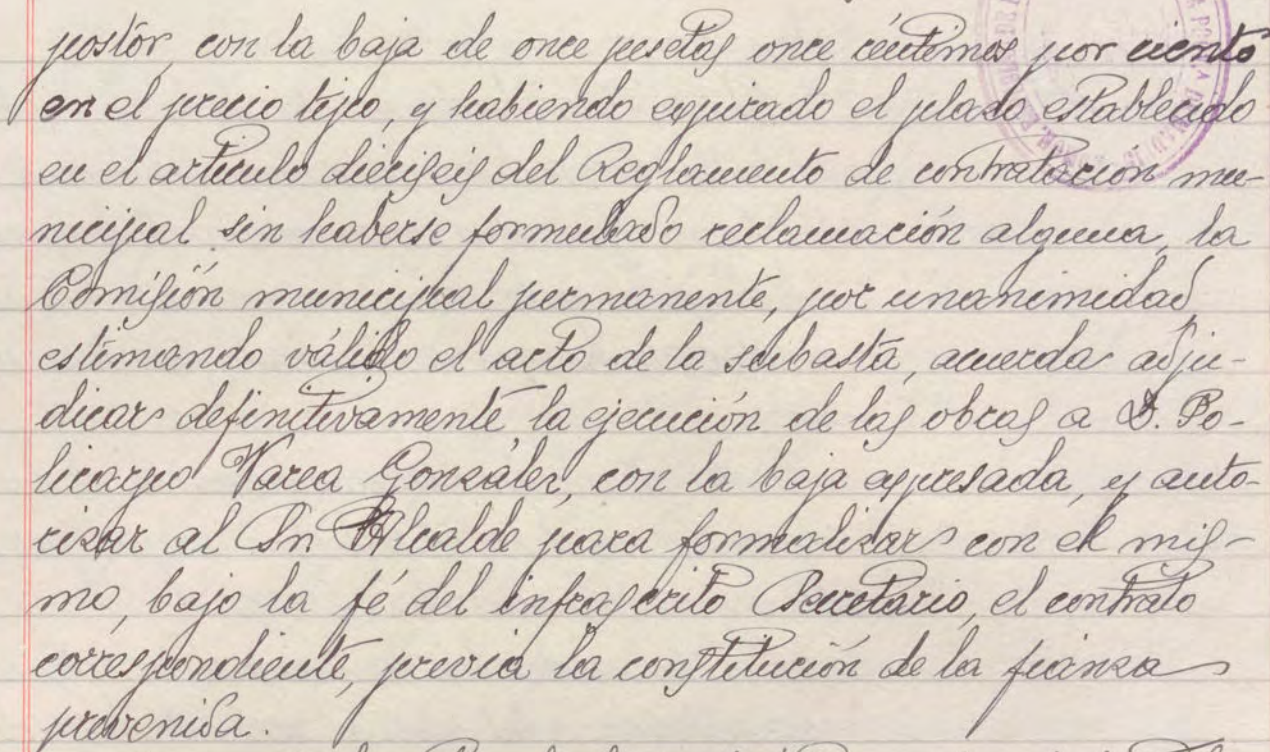 postor, con la baja de once pesetas once céntimos por ciento
en el precio tipo, y habiendo expirado el plazo establecido
en el artículo dieciseis del Reglamento de contratación mu-
nicipal sin haberse formulado reclamación alguna, la
Comisión municipal permanente, por unanimidad
estimando válido el acto de la subasta, acuerda adju-
dicar definitivamente la ejecución de las obras a D. Po-
licarpo Varea González, con la baja expresada, y auto-
rizar al Sr. Alcalde para formalizar con el mis-
mo, bajo la fé del infrascrito Secretario, el contrato
correspondiente, previa la constitución de la fianza
prevenida.